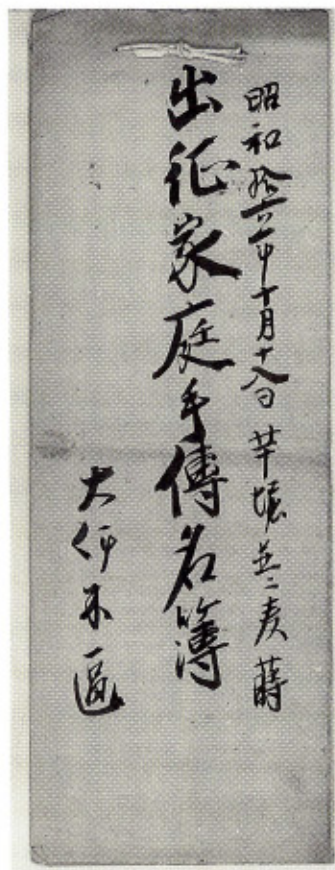 昭和拾六年十月十八日 芋堀並ニ麦蒔
出征家庭手傳名簿
大